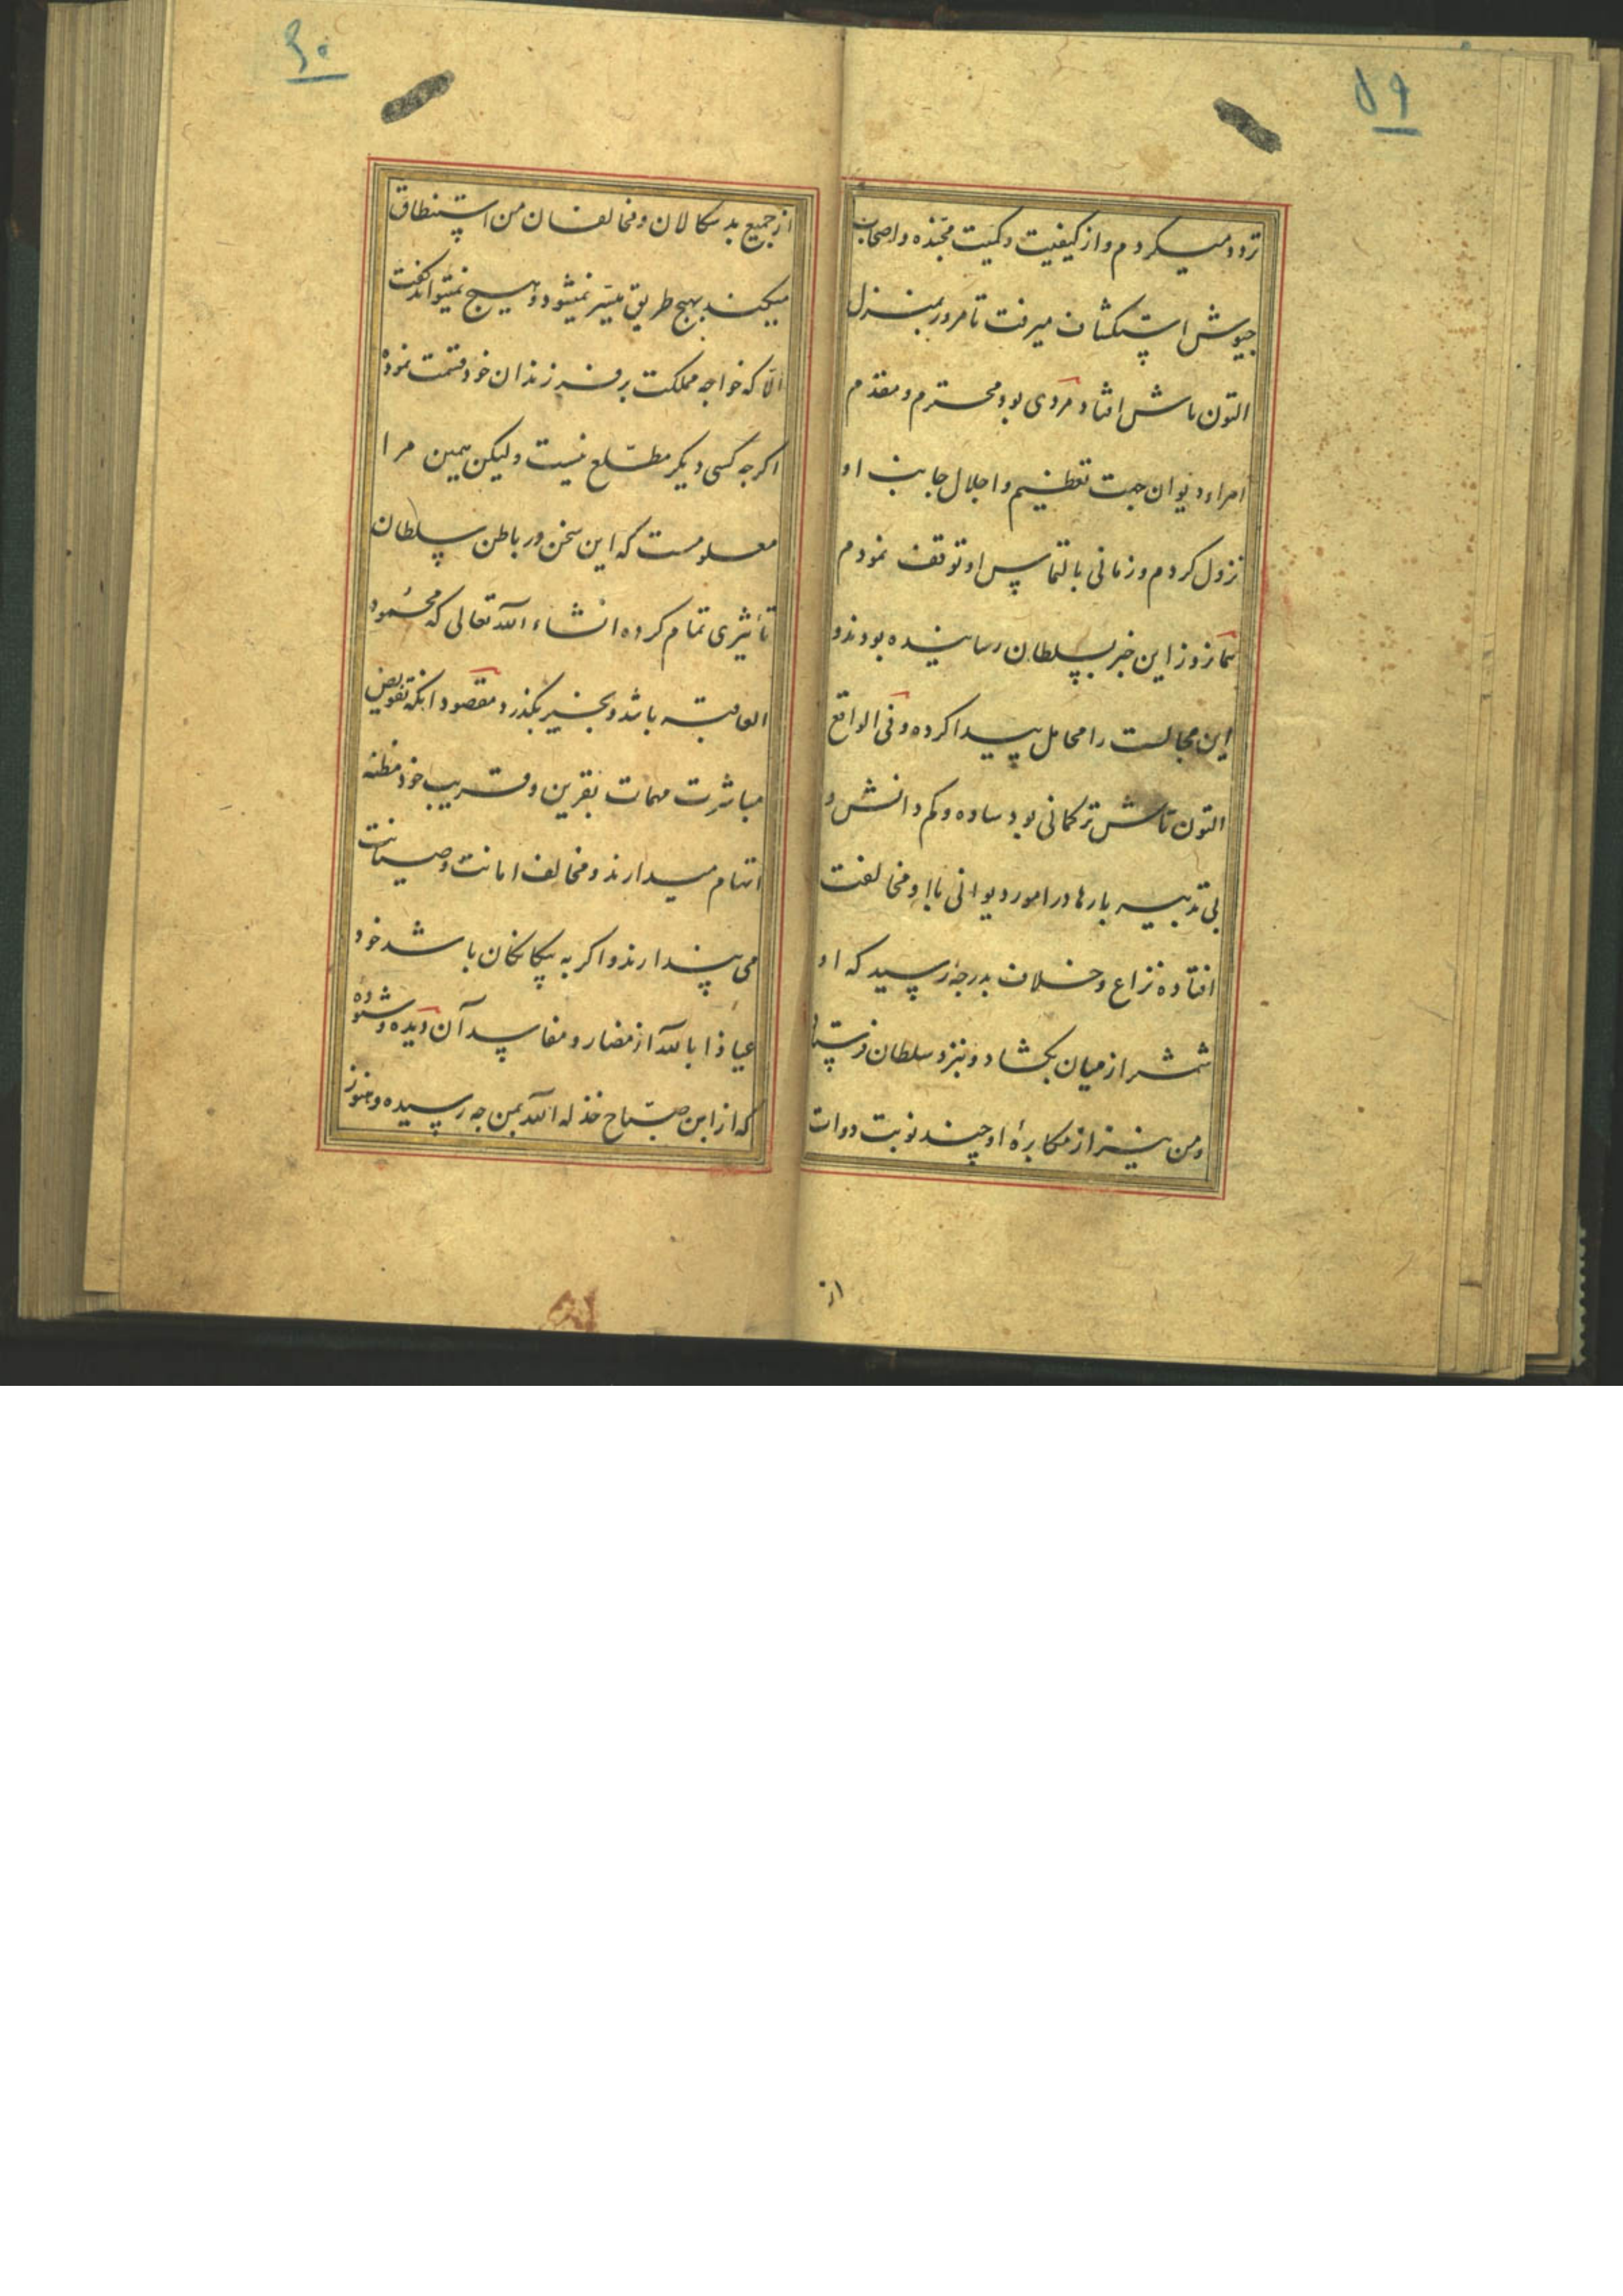 ۵۹
تردد میکردم و از کیفیت و کمیت مجنده و اصحاب
جیوش استکشاف میرفت تا مرور بمنزل
التون تاش افتاد مردی بود محترم و مقدم
امراء دیوان جهت تعظیم و اجلال جانب او
نزول کردم و زمانی بالتماس او توقف نمودم
همانروز این خبر بسلطان رسانیده بودند و
این مجالست را محامل پیدا کرده و فی الواقع
التون تاش ترکمانی بود ساده و کم دانش و
بی تدبیر بارها در امور دیوانی با او مخالفت
افتاده نزاع و خلاف بدرجۀ رسید که او
شمشیر از میان بگشاد و نزد سلطان فرستاد
و من نیز از مکابرۀ او چند نوبت دوات
از
۶۰
از جمیع بدسکالان و مخالفان من استنطاق
میکند بهیچ طریق میسر نمیشود و هیچ نمیتواند گفت
الّا که خواجه مملکت بر فرزندان خود قسمت نموده
اکرجه کسی دیکر مطّلع نیست و لیکن همین مرا
معلومست که این سخن در باطن سلطان
تأثیری تمام کرده انشاء الله تعالی که محمود
العاقبة باشد و بخیر بگذرد مقصود انکه تفویض
مباشرت مهمات بقرین و قریب خود مظنه
اتهام میدارند و مخالف امانت و صیانت
می پندارند و اکر به بیکانکان باشد خود
عیاذا بالله از مضار و مفاسد آن دیده و شنوده
که از ابن صبّاح خذله الله بمن جه رسیده و هنوز